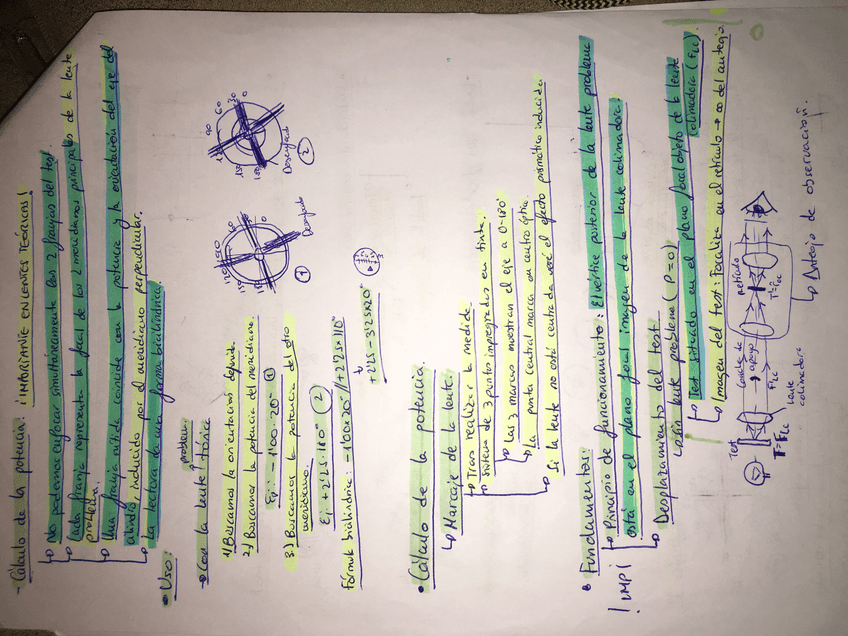 - Cálculo de la potencia: ¡IMPORTANTE EN LENTES TEÓRICAS!
↳ No podremos enfocar simultáneamente las 2 franjas del test.
↳ Cada franja representa la focal de los 2 meridianos principales de la lente
problema.
↳ Una franja nítida coincide con la potencia y la orientación del eje del
cilindro, inducido por el meridiano perpendicular.
↳ La lectura da una forma bicilíndrica.
• Uso:
→ Con la lente problema tórica
1) Buscamos la orientación definida.
2) Buscamos la potencia del meridiano.
Ej: -1'00 · 20° ①
3) Buscamos la potencia del otro
meridiano.
Ej +2'25 · 110° ②
Fórmula bicilíndrica: -1'00x20°//+2'25x110°
↳
+2'25 -3'25x20°
①
Desenfocado
②
Desenfocado
• Cálculo de la potencia.
↳ Marcaje de la lente.
↳ Tras realizar la medida.
↳ Sistema de 3 puntos impregnados en tinta.
↳ Las 3 marcas muestran el eje a 0-180°
↳ La punta central marca un centro óptico.
↳ Si la lente no está centrada veré el efecto prismático inducido.
• Fundamentos:
¡IMP! ↳ Principio de funcionamiento: El vértice posterior de la lente problema
está en el plano focal imagen de la lente colimadora.
↳ Desplazamiento del test
↳ Sin lente problema (P=0)
↳ Test situado en el plano focal objeto de la lente
colimadora (FLC).
↳ Imagen del test: Focaliza en el retículo → ∞ del anteojo
Test
Concha de
apoyo
Retículo
T≡FLC
F'LC
Lente
colimadora
↳ Anteojo de observación.